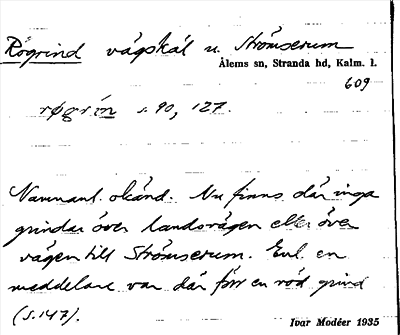 Rögrind vägskäl u. Strömserum
Ålems sn, Stranda hd, Kalm. l.
609
røgrín s. 90, 127.
Namnanl. okänd. Nu finns där inga
grindar över landsvägen eller över
vägen till Strömserum. Enl. en
meddelare var där förr en röd grind
(s. 147).
Ivar Modéer 1935